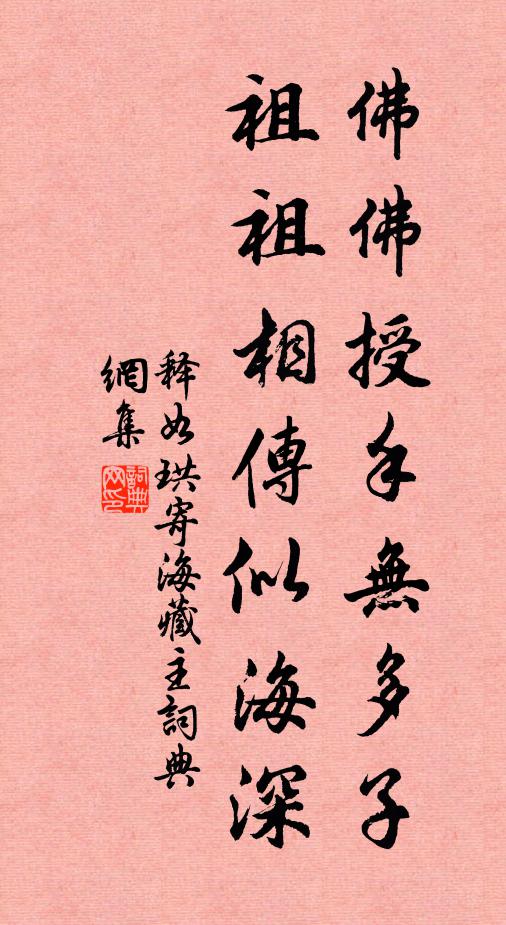 佛佛授手無多子
祖祖相傳似海深
釋如珙寄海藏主詞典
網集
詞典網印